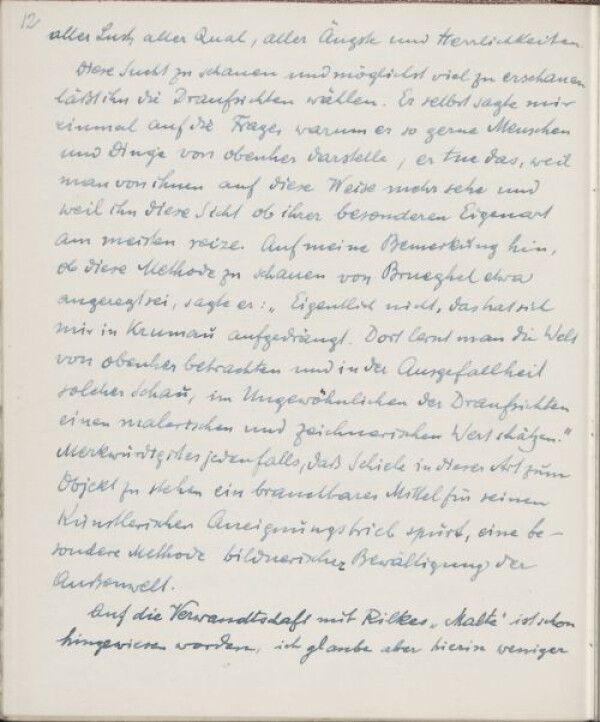 12
aller Lust, aller Qual, aller Ängste und Herrlichkeiten.
Diese Sucht zu schauen und möglichst viel zu erschauen
läßt ihn die Draufsichten wählen. Er selbst sagte mir
einmal auf die Frage, warum er so gerne Menschen
und Dinge von obenher darstelle, er tue das, weil
man von ihnen auf diese Weise mehr sehe und
weil ihn diese Sicht ob ihrer besonderen Eigenart
am meisten reize. Auf meine Bemerkung hin,
ob diese Methode zu schauen von Brueghel etwa
angeregt sei, sagte er: „Eigentlich nicht, das hat sich
mir in Krumau aufgedrängt. Dort lernt man die Welt
von obenher betrachten und in der Ausgefallheit
solcher Schau, im Ungewöhnlichen der Draufsichten
einen malerischen und zeichnerischen Wert schätzen.“
Merkwürdig ist es jedenfalls, daß Schiele in dieser Art zum
Objekt zu stehen ein brauchbares Mittel für seinen
künstlerischen Aneignungstrieb spürt, eine be-
sondere Methode bildnerischer Bewältigung der
Außenwelt.
Auf die Verwandtschaft mit Rilkes „Malte“ ist schon
hingewiesen worden, ich glaube aber hierin weniger